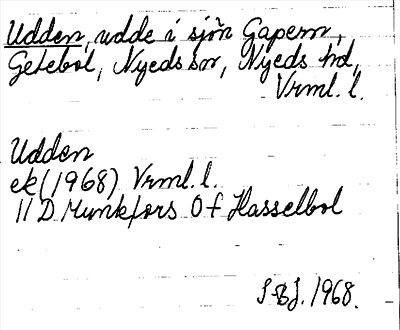 Udden, udde i sjön Gapern,
Getebol, Nyeds sn, Nyeds hd,
Vrml. l.
Udden
ek (1968) Vrml. l.
11 D Munkfors 0 f Hasselbol
1968.